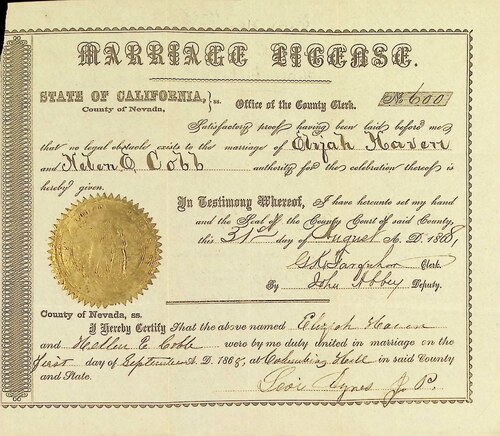 MARRIAGE LICENSE.
STATE OF CALIFORNIA, } ss. Office of the County Clerk. No 600
County of Nevada,
Satisfactory proof having been laid before me
that no legal obstacle exists to the marriage of Elijah Haven
and Helen E. Cobb authority for the celebration thereof is
hereby given.
In Testimony Whereof, I have hereunto set my hand
and the Seal of the County Court of said County,
this 31st day of August A. D. 1868,
Clerk.
By John Abbey Deputy.
County of Nevada, ss.
I Hereby Certify That the above named Elijah Haven
and Hellen E. Cobb were by me duly united in marriage on the
first day of September A. D. 1868, at Columbia Hill in said County
and State.
J. P.